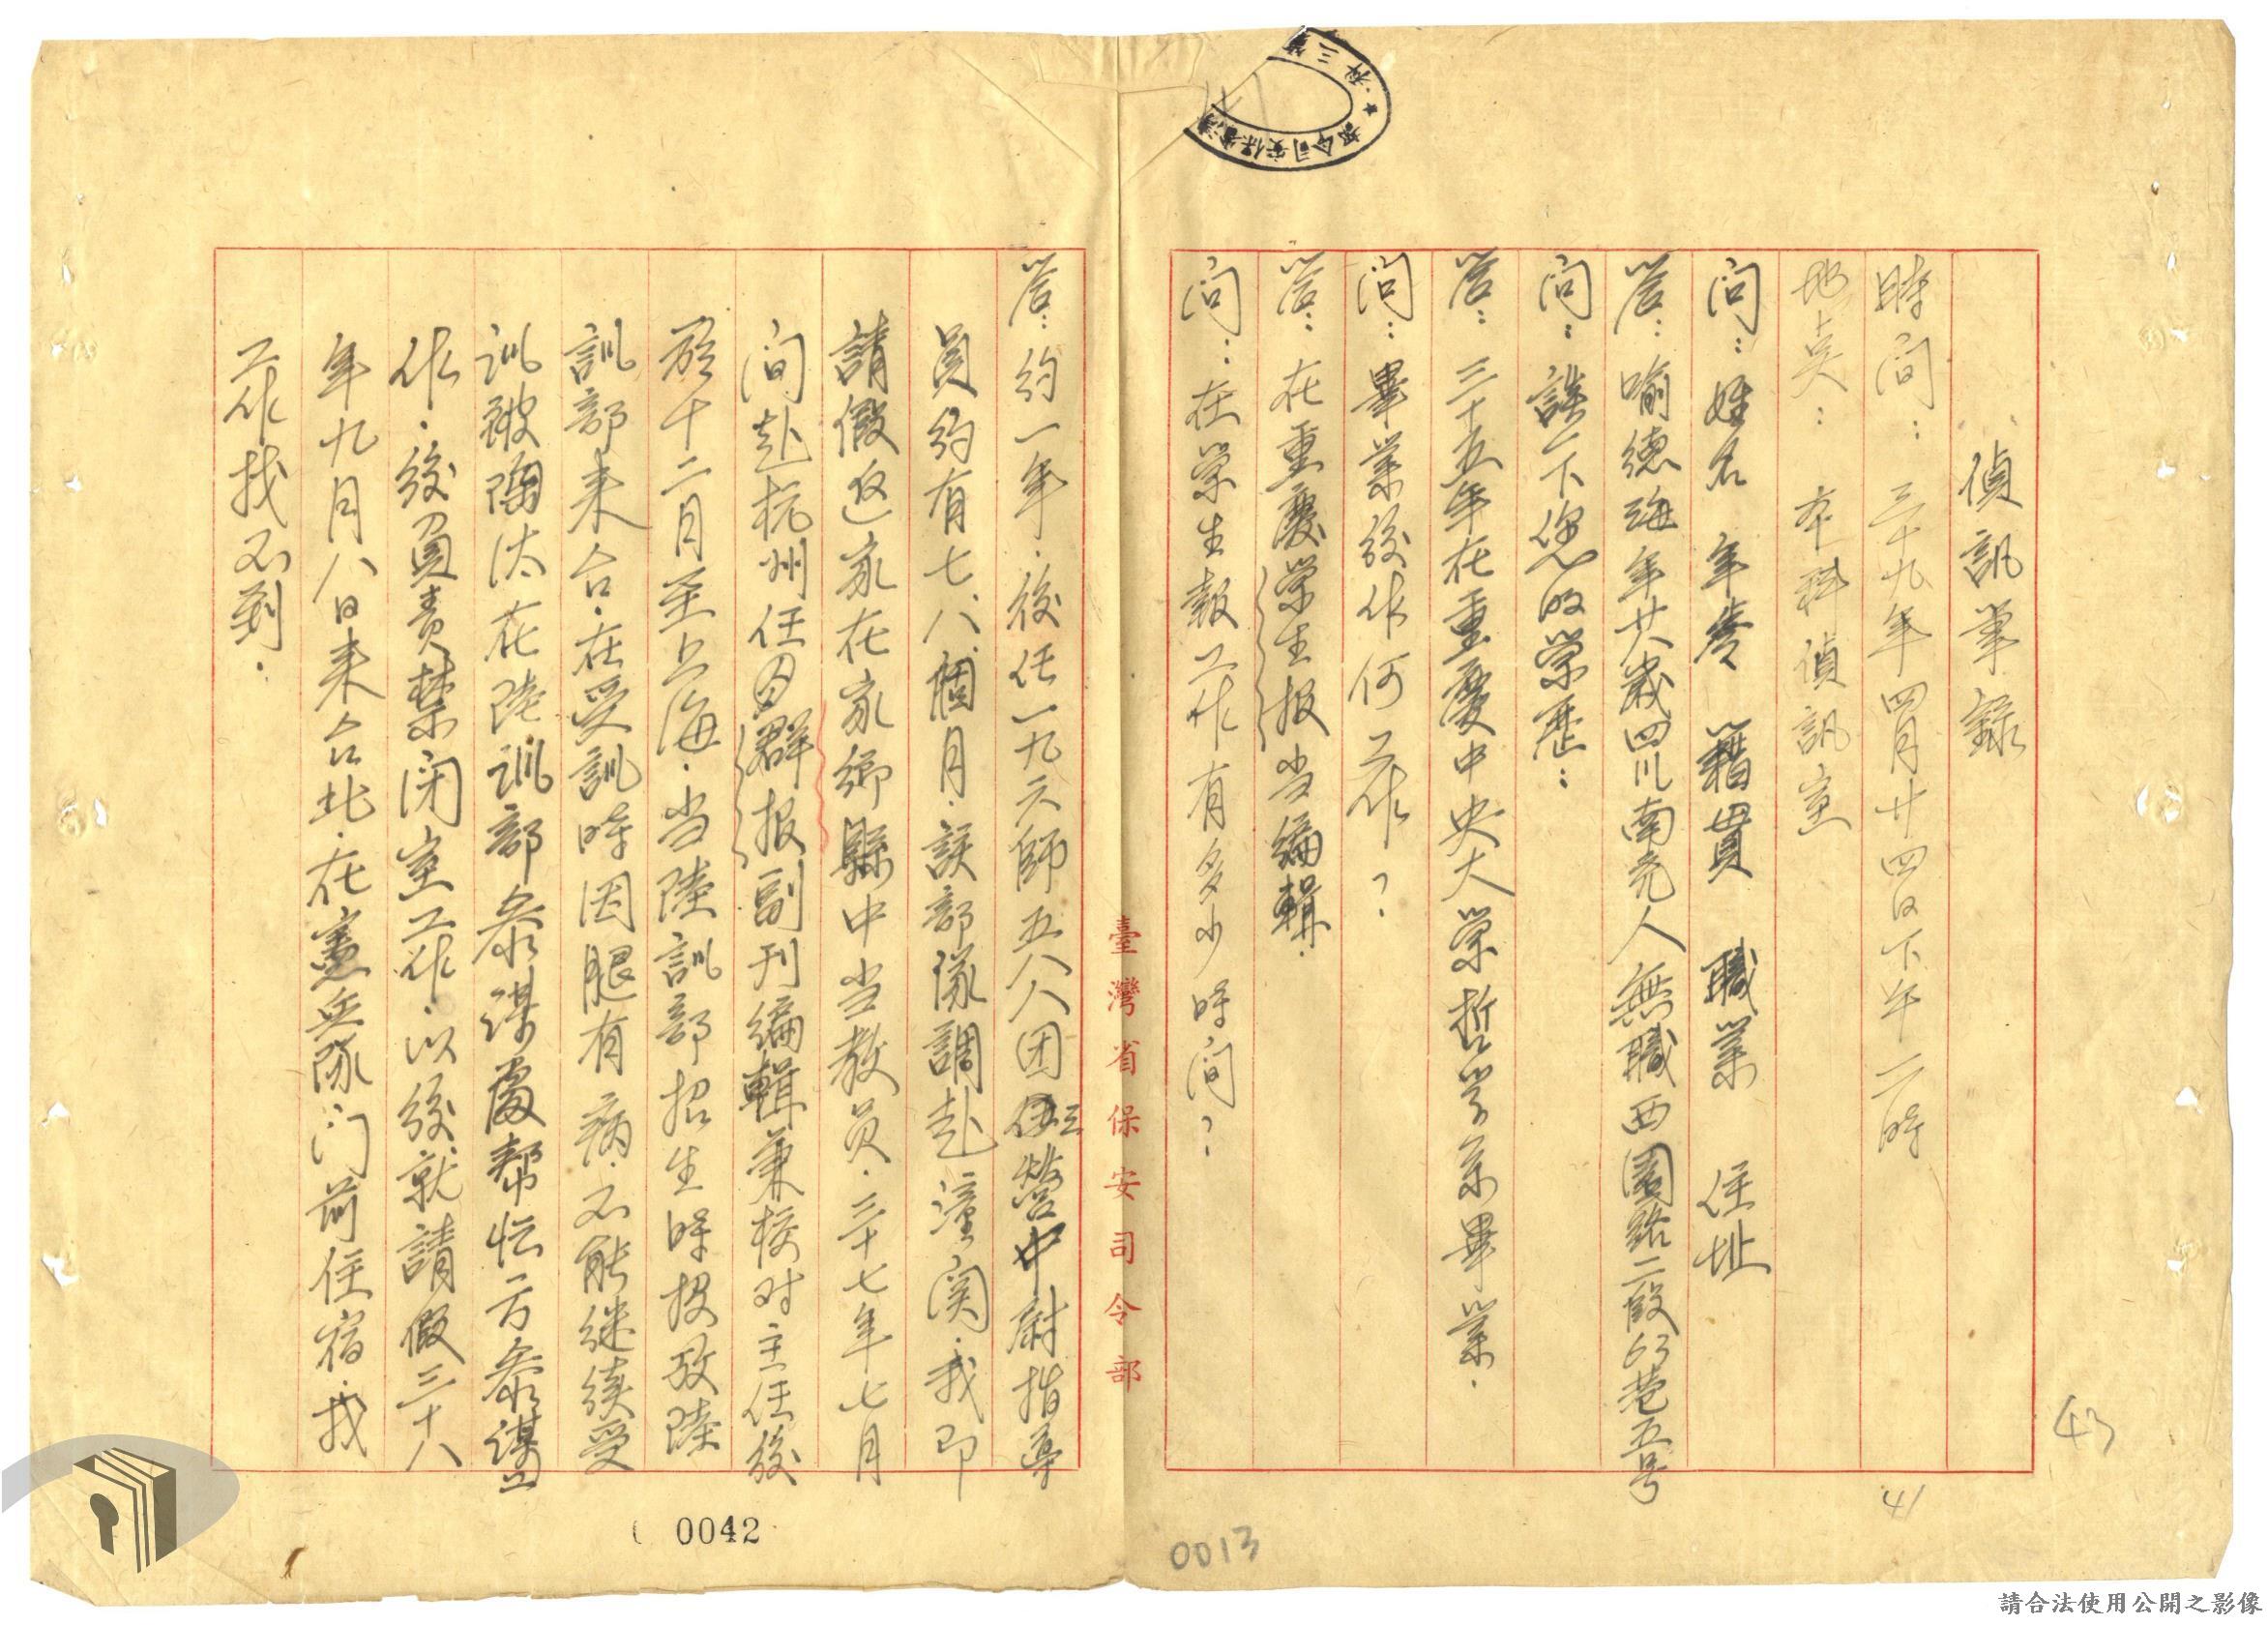 偵訊筆錄
時间：三十九年四月廿四日下午二時
地点：本科偵訊室
问：姓名 年岑 籍貫 職業 住址
答：喻德海年廿八歲四川南充人無職西園路二段63巷五号
问：談一下您的学歷：
答：三十五年在重慶中央大学哲学系畢業．
问：畢業後作何工作？
答：在重慶学生报当編輯．
问：在学生報工作有多少時间？
臺灣省保安司令部
答：約一年．後任一九六師五八八团三營中尉指導
員約有七、八、個月．該部隊調赴潼関．我即
請假返家在家鄉縣中当教員．三十七年七月
间赴杭州任群报副刊編輯兼校对主任後
於十二月至上海．当陸訓部招生時投攷陸
訓部来台．在受訓時因腿有病．不能继续受
訓被陶汰在陸訓部参謀處帮忙一方参謀工
作．後負責禁闭室工作．以後就請假三十八
年九月八日来台北．在憲兵隊门前住宿．找
工作找不到．
第三科
灣省保安司令部
43
41
0013
0042
請合法使用公開之影像